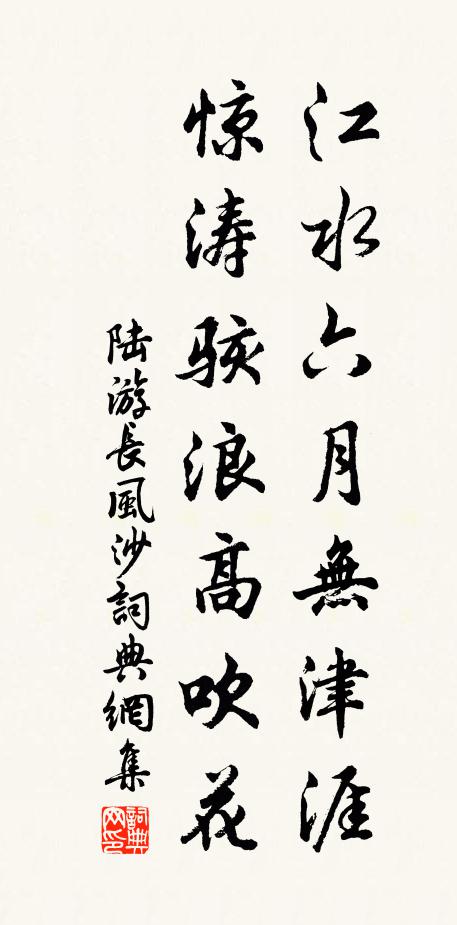 江水六月無津涯
惊涛骇浪高吹花
陆游長風沙詞典網集
詞典网印